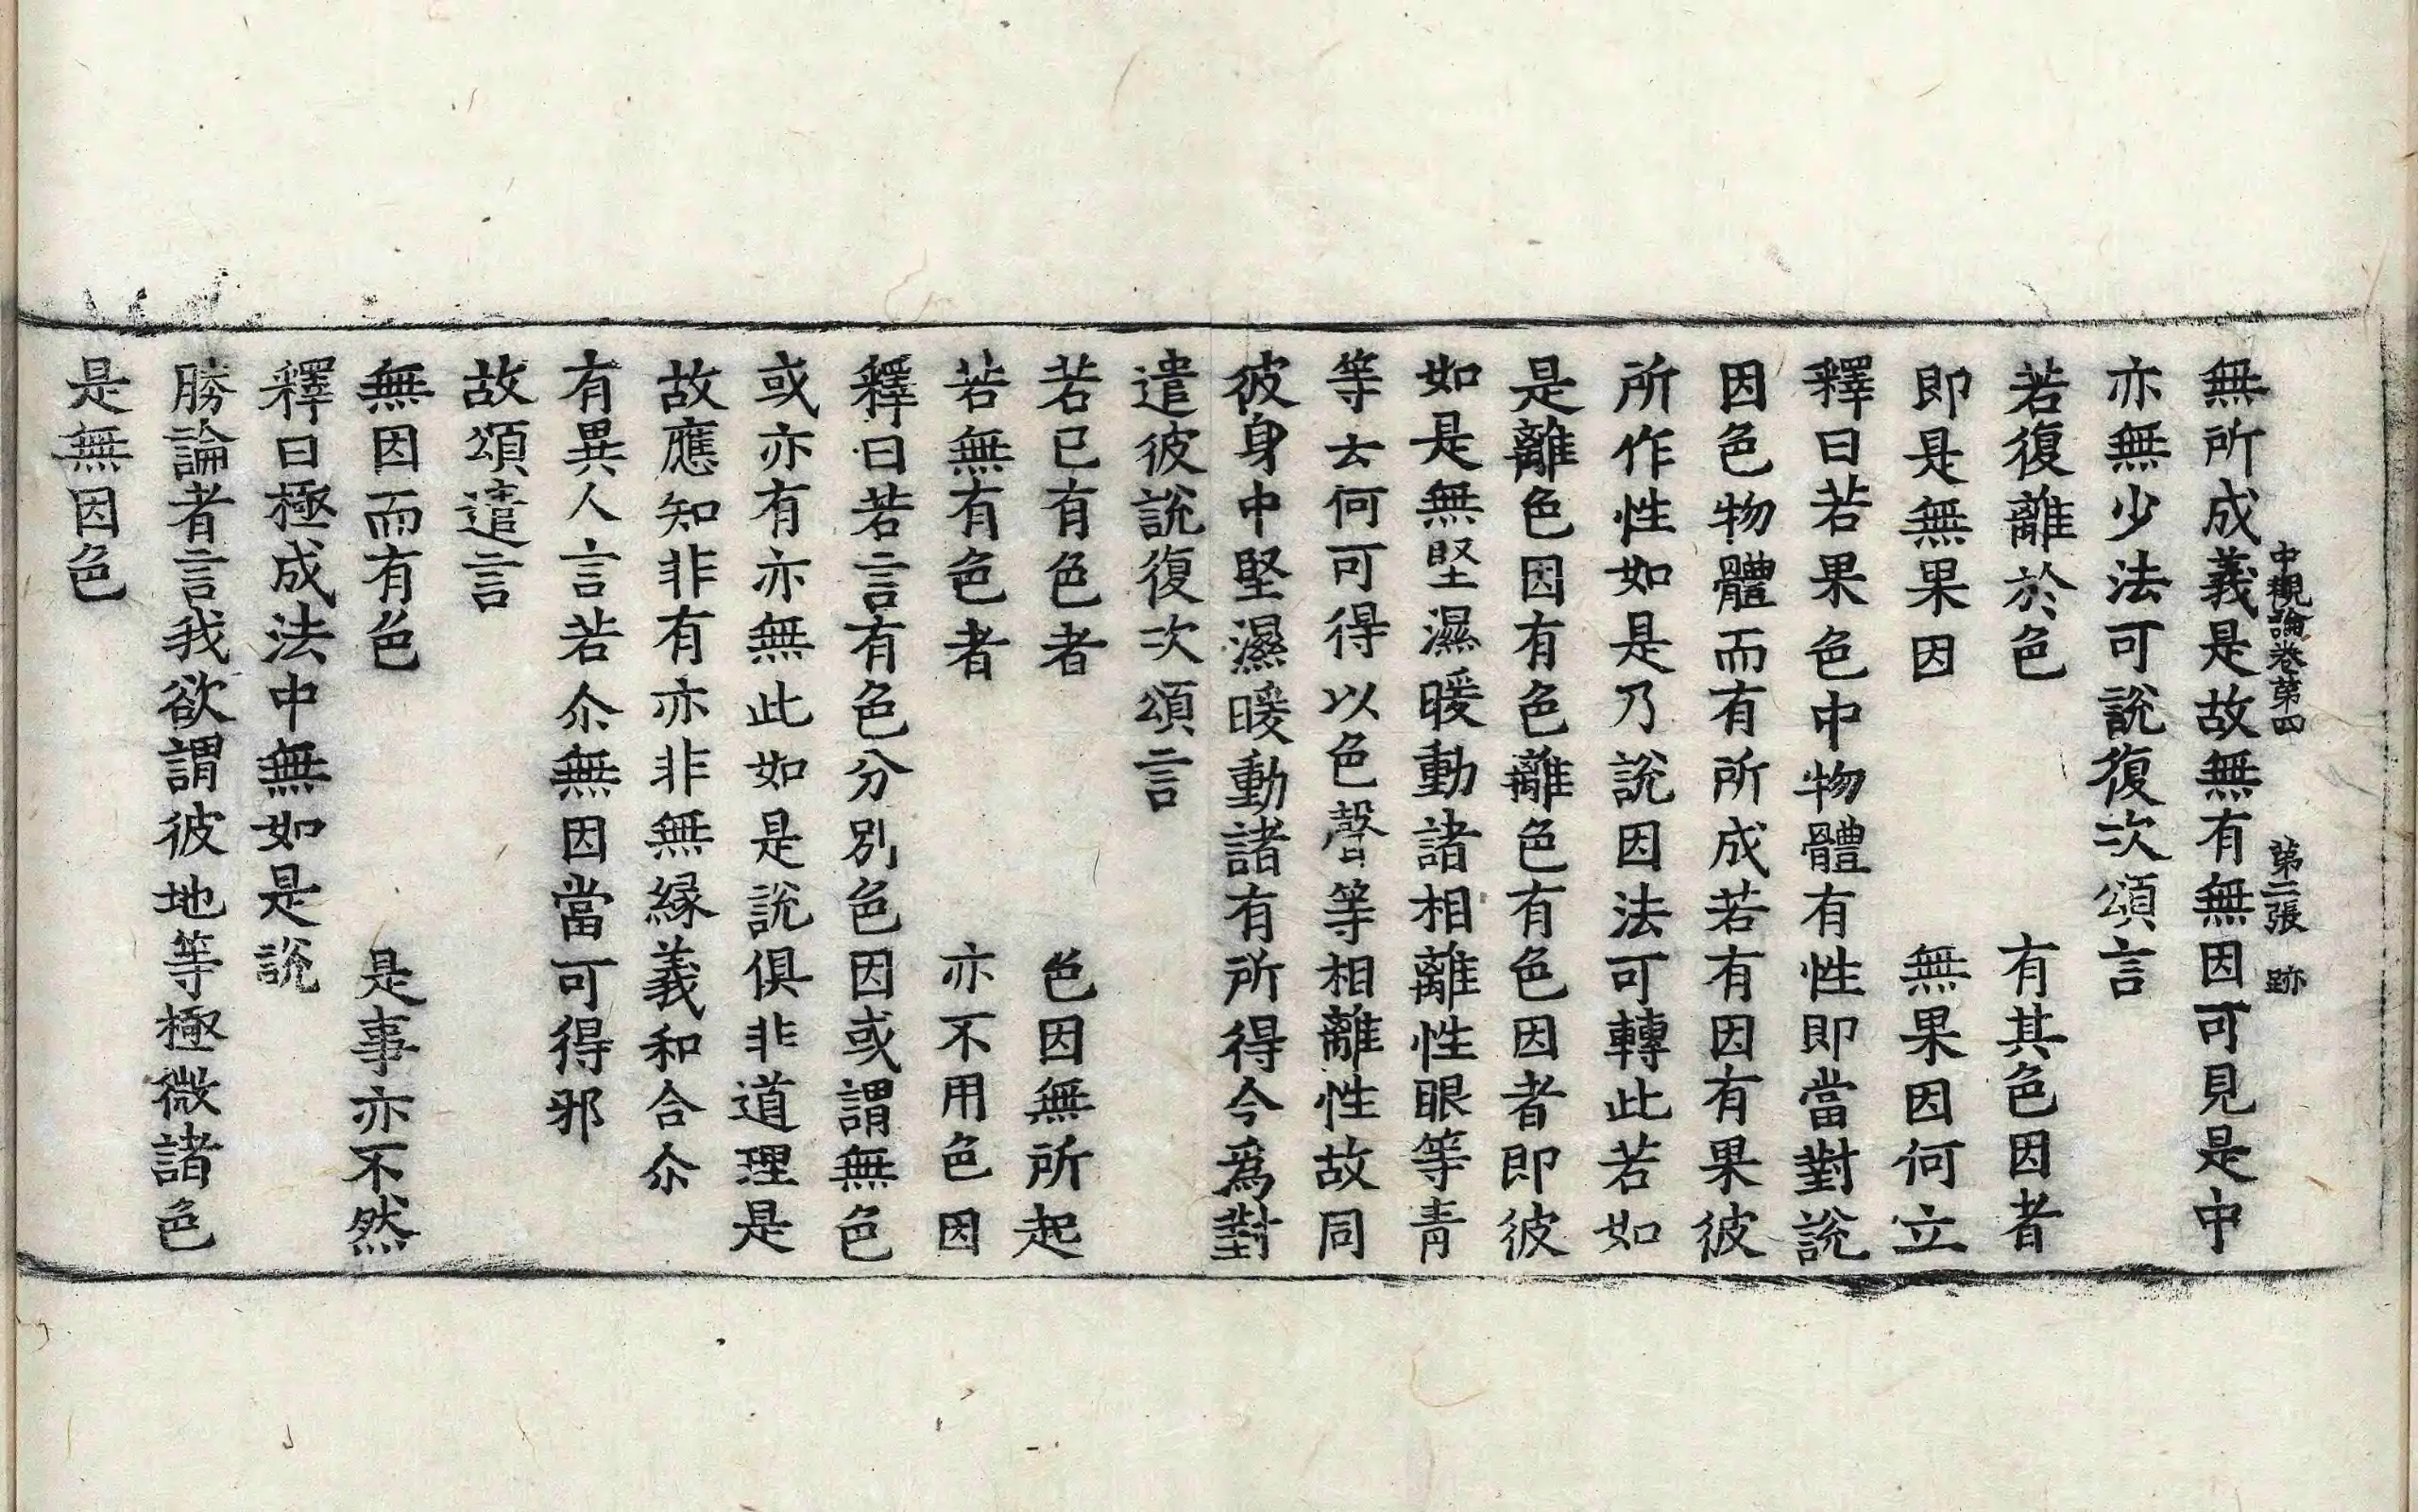 中觀論卷第四　第二張　跡
無所成義是故無有無因可見是中
亦無少法可說復次頌言
若復離於色　有其色因者
即是無果因　無果因何立
釋曰若果色中物體有性即當對說
因色物體而有所成若有因有果彼
所作性如是乃說因法可轉此若如
是離色因有色離色有色因者即彼
如是無堅濕暖動諸相離性眼等青
等云何可得以色聲等相離性故同
彼身中堅濕暖動諸有所得今爲對
遣彼說復次頌言
若已有色者　色因無所起
若無有色者　亦不用色因
釋曰若言有色分別色因或謂無色
或亦有亦無此如是說俱非道理是
故應知非有亦非無緣義和合尒
有異人言若尒無因當可得邪
故頌遣言
無因而有色　是事亦不然
釋曰極成法中無如是說
勝論者言我欲謂彼地等極微諸色
是無因色